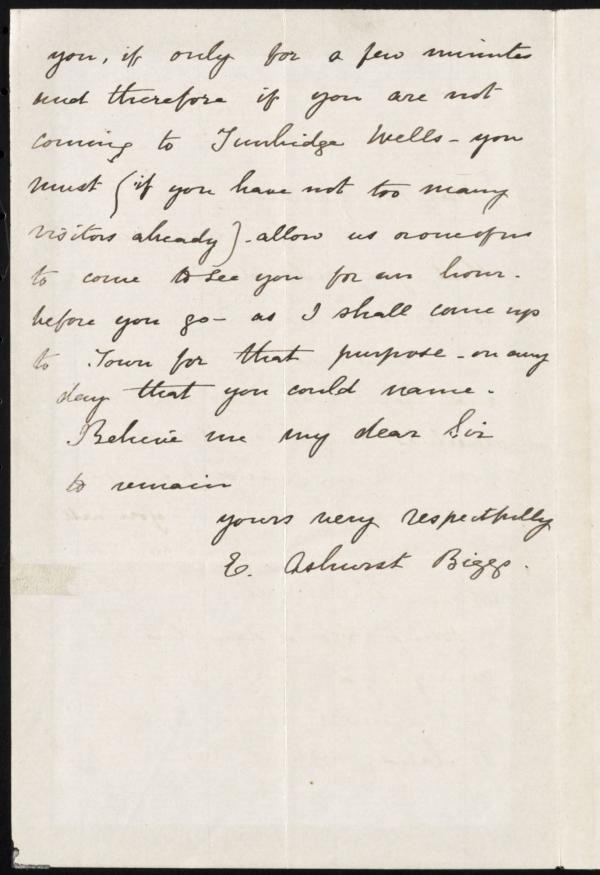 you, if only for a few minutes
and therefore if you are not
coming to Tunbridge Wells - you
must (if you have not too many
visitors already) - allow us
to come to see you for an hour -
before you go - as I shall come up
to Town for that purpose - on any
day that you could name -
Believe me my dear Sir
to remain
yours very respectfully
E. Ashurst Biggs.